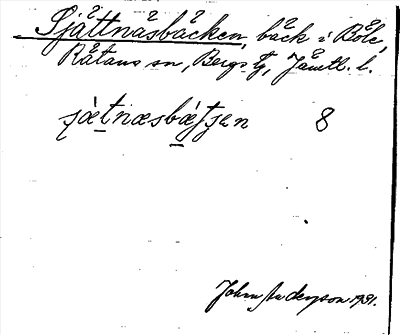 Sjättnäsbäcken, bäck i Böle,
Rätans sn, Bergs tg, Jämtl. l.
sjæ̀tnæsbæ̀ʃʃen 8
John Anderson 1931.